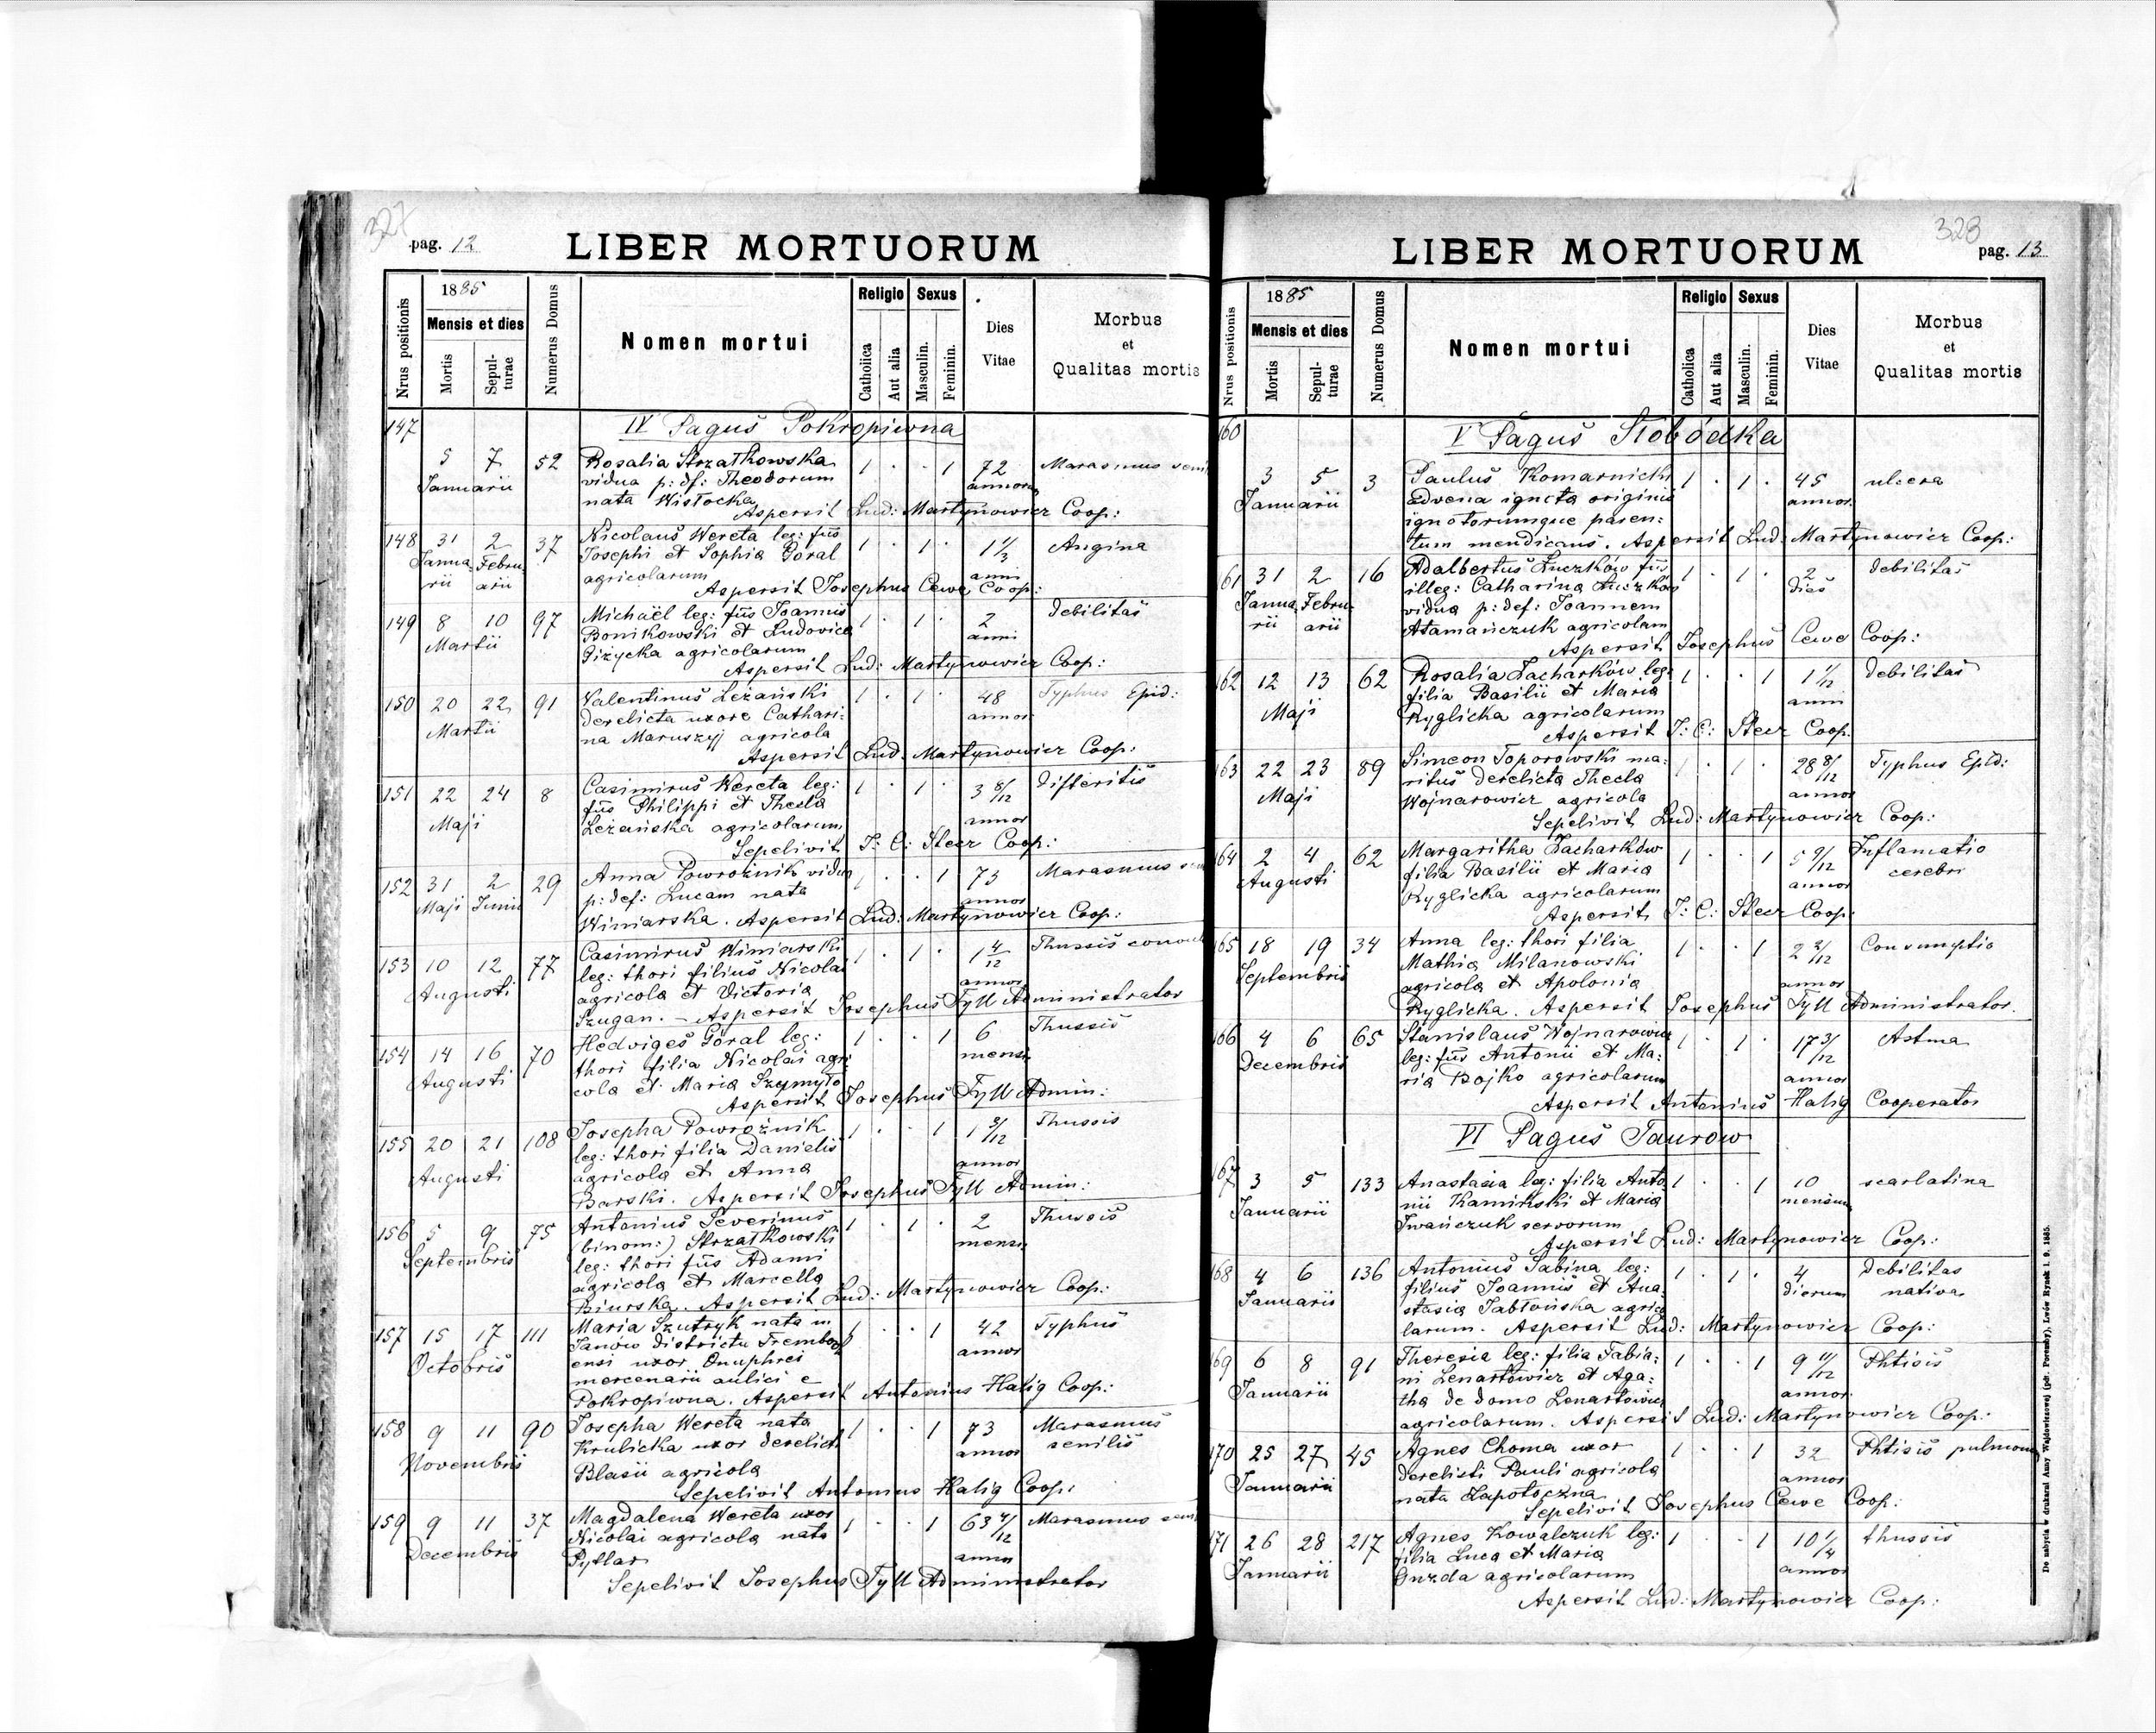 327
pag. 12
LIBER MORTUORUM
Nrus positionis
1885
Mensis et dies
Mortis
Sepul-
turae
Numerus Domus
Nomen mortui
Religio
Catholica
Aut alia
Sexus
Masculin.
Feminin.
Dies
Vitae
Morbus
et
Qualitas mortis
IV Pagus Pokropiwna
147 5 7 52 Rosalia Strzałkowska 1 . . 1 72 Marasmus
Januarii vidua p: df: Theodorum annor
nata Wisłocka
Aspersit Lud: Martynowicz Coop:
148 31 2 37 Nicolaus Wereta leg: fiis 1 . 1 . 1 1/3 Angina
Janua Febru Josephi et Sophia Goral
rii arii agricolarum anni
Aspersit Josephus Cewe Coop:
149 8 10 97 Michaël leg: fiis Joannis 1 . 1 . 2 debilitas
Martii Bonikowski et Ludovica anni
Giżycka agricolarum
Aspersit Lud: Martynowicz Coop:
150 20 22 91 Valentinus Leżański 1 . 1 . 48 Typhus Epid:
Martii derelicta uxore Cathari: annor
na Maruszyj agricola
Aspersit Lud: Martynowicz Coop:
151 22 24 8 Casimirus Wereta leg: 1 . 1 . 3 8/12 difteritis
Maji fiis Philippi et Thecla annor
Leżańska agricolarum
Sepelivit J: C: Steer Coop:
152 31 2 29 Anna Powroźnik vidua 1 . . 1 73 Marasmus
Maji Junii p: def: Lucam nata annor
Winiarska. Aspersit Lud: Martynowicz Coop:
153 10 12 77 Casimirus Winiarski 1 . 1 . 1 4/12 Thussis
Augusti leg: thori filius Nicolai annor
agricola et Victoria
Szugan. - Aspersit Josephus Tyll Administrator
154 14 16 70 Hedviges Goral leg: 1 . . 1 6 Thussis
Augusti thori filia Nicolai agri: mens
cola et Maria Szymyło
Aspersit Josephus Tyll Admin:
155 20 21 108 Josepha Powroźnik 1 . . 1 1 3/12 Thussis
Augusti leg: thori filia Danielis annor
agricola et Anna
Barski. Aspersit Josephus Tyll Admin:
156 5 9 75 Antonius Severinus 1 . 1 . 2 Thussis
Septembris (binom:) Strzałkowski mens
leg: thori fiis Adami
agricola et Marcella
Biurska. Aspersit Lud: Martynowicz Coop:
157 15 17 111 Maria Szutryk nata in 1 . . 1 42 Typhus
Octobris Janów districtu Trembow annor
ensi uxor Onuphrei
mercenarii aulici e
Pokropiwna. Aspersit Antonius Halig Coop:
158 9 11 90 Josepha Wereta nata 1 . . 1 73 Marasmus
Novembris Krulicka uxor derelict annor senilis
Blasii agricola
Sepelivit Antonius Halig Coop:
159 9 11 37 Magdalena Wereta uxor 1 . . 1 63 4/12 Marasmus
Decembris Nicolai agricola nata annor
Pytlar
Sepelivit Josephus Tyll Administrator
328
pag. 13
LIBER MORTUORUM
Nrus positionis
1885
Mensis et dies
Mortis
Sepul-
turae
Numerus Domus
Nomen mortui
Religio
Catholica
Aut alia
Sexus
Masculin.
Feminin.
Dies
Vitae
Morbus
et
Qualitas mortis
V Pagus Słobódka
160 3 5 3 Paulus Komarnicki 1 . 1 . 45 ulcera
Januarii advena ignota originis annor.
ignotorumque paren:
tum mendicans. Aspersit Lud: Martynowicz Coop:
161 31 2 16 Adalbertus Łuczków fiis 1 . 1 . 2 debilitas
Janua Febru illeg: Catharina Łuczków dies
rii arii vidua p: def: Joannem
Atamańczuk agricolam
Aspersit Josephus Cewe Coop:
162 12 13 62 Rosalia Zacharków leg: 1 . . 1 1 1/12 debilitas
Maji filia Basilii et Maria anni
Ryglicka agricolarum
Aspersit J: C: Steer Coop.
163 22 23 89 Simeon Toporowski ma: 1 . 1 . 28 8/12 Typhus Epid:
Maji ritus derelicta Thecla annor
Wojnarowicz agricola
Sepelivit Lud: Martynowicz Coop:
164 2 4 62 Margaritha Zacharków 1 . . 1 5 9/12 Inflamatio
Augusti filia Basilii et Maria annor cerebri
Ryglicka agricolarum
Aspersit J: C: Steer Coop:
165 18 19 34 Anna leg: thori filia 1 . . 1 2 2/12 Consumptio
Septembris Mathia Milanowski annor
agricola et Apolonia
Ryglicka. Aspersit Josephus Tyll Administrator.
166 4 6 65 Stanislaus Wojnarowicz 1 . 1 . 17 3/12 Astma
Decembris leg: fiis Antonii et Ma: annor
ria Bojko agricolarum
Aspersit Antonius Halig Cooperator
VI Pagus Taurow
167 3 5 133 Anastasia leg: filia Anto 1 . . 1 10 scarlatina
Januarii nii Kamiński et Maria mensium
Iwańczuk servorum
Aspersit Lud: Martynowicz Coop:
168 4 6 136 Antonius Sabina leg: 1 . 1 . 4 debilitas
Januarii filius Joannis et Ana: dierum nativa
stasia Jabłońska agrico
larum. Aspersit Lud: Martynowicz Coop:
169 6 8 91 Theresia leg: filia Fabia: 1 . . 1 9 11/12 Phtisis
Januarii ni Lenartowicz et Aga: annor.
tha de domo Lenartowicz
agricolarum. Aspersit Lud: Martynowicz Coop:
170 25 27 45 Agnes Choma uxor 1 . . 1 32 Phtisis pulmonu
Januarii derelicti Pauli agricola annor
nata Zapotoczna
Sepelivit Josephus Cewe Coop:
171 26 28 217 Agnes Kowalczuk leg: 1 . . 1 10 1/4 thussis
Januarii filia Luca et Maria annor
Gnzda agricolarum
Aspersit Lud: Martynowicz Coop:
Do nabycia w drukarni Anny Wajdowiczowej (pdr. Poremby), Lwów Rynek l. 9. 1885.